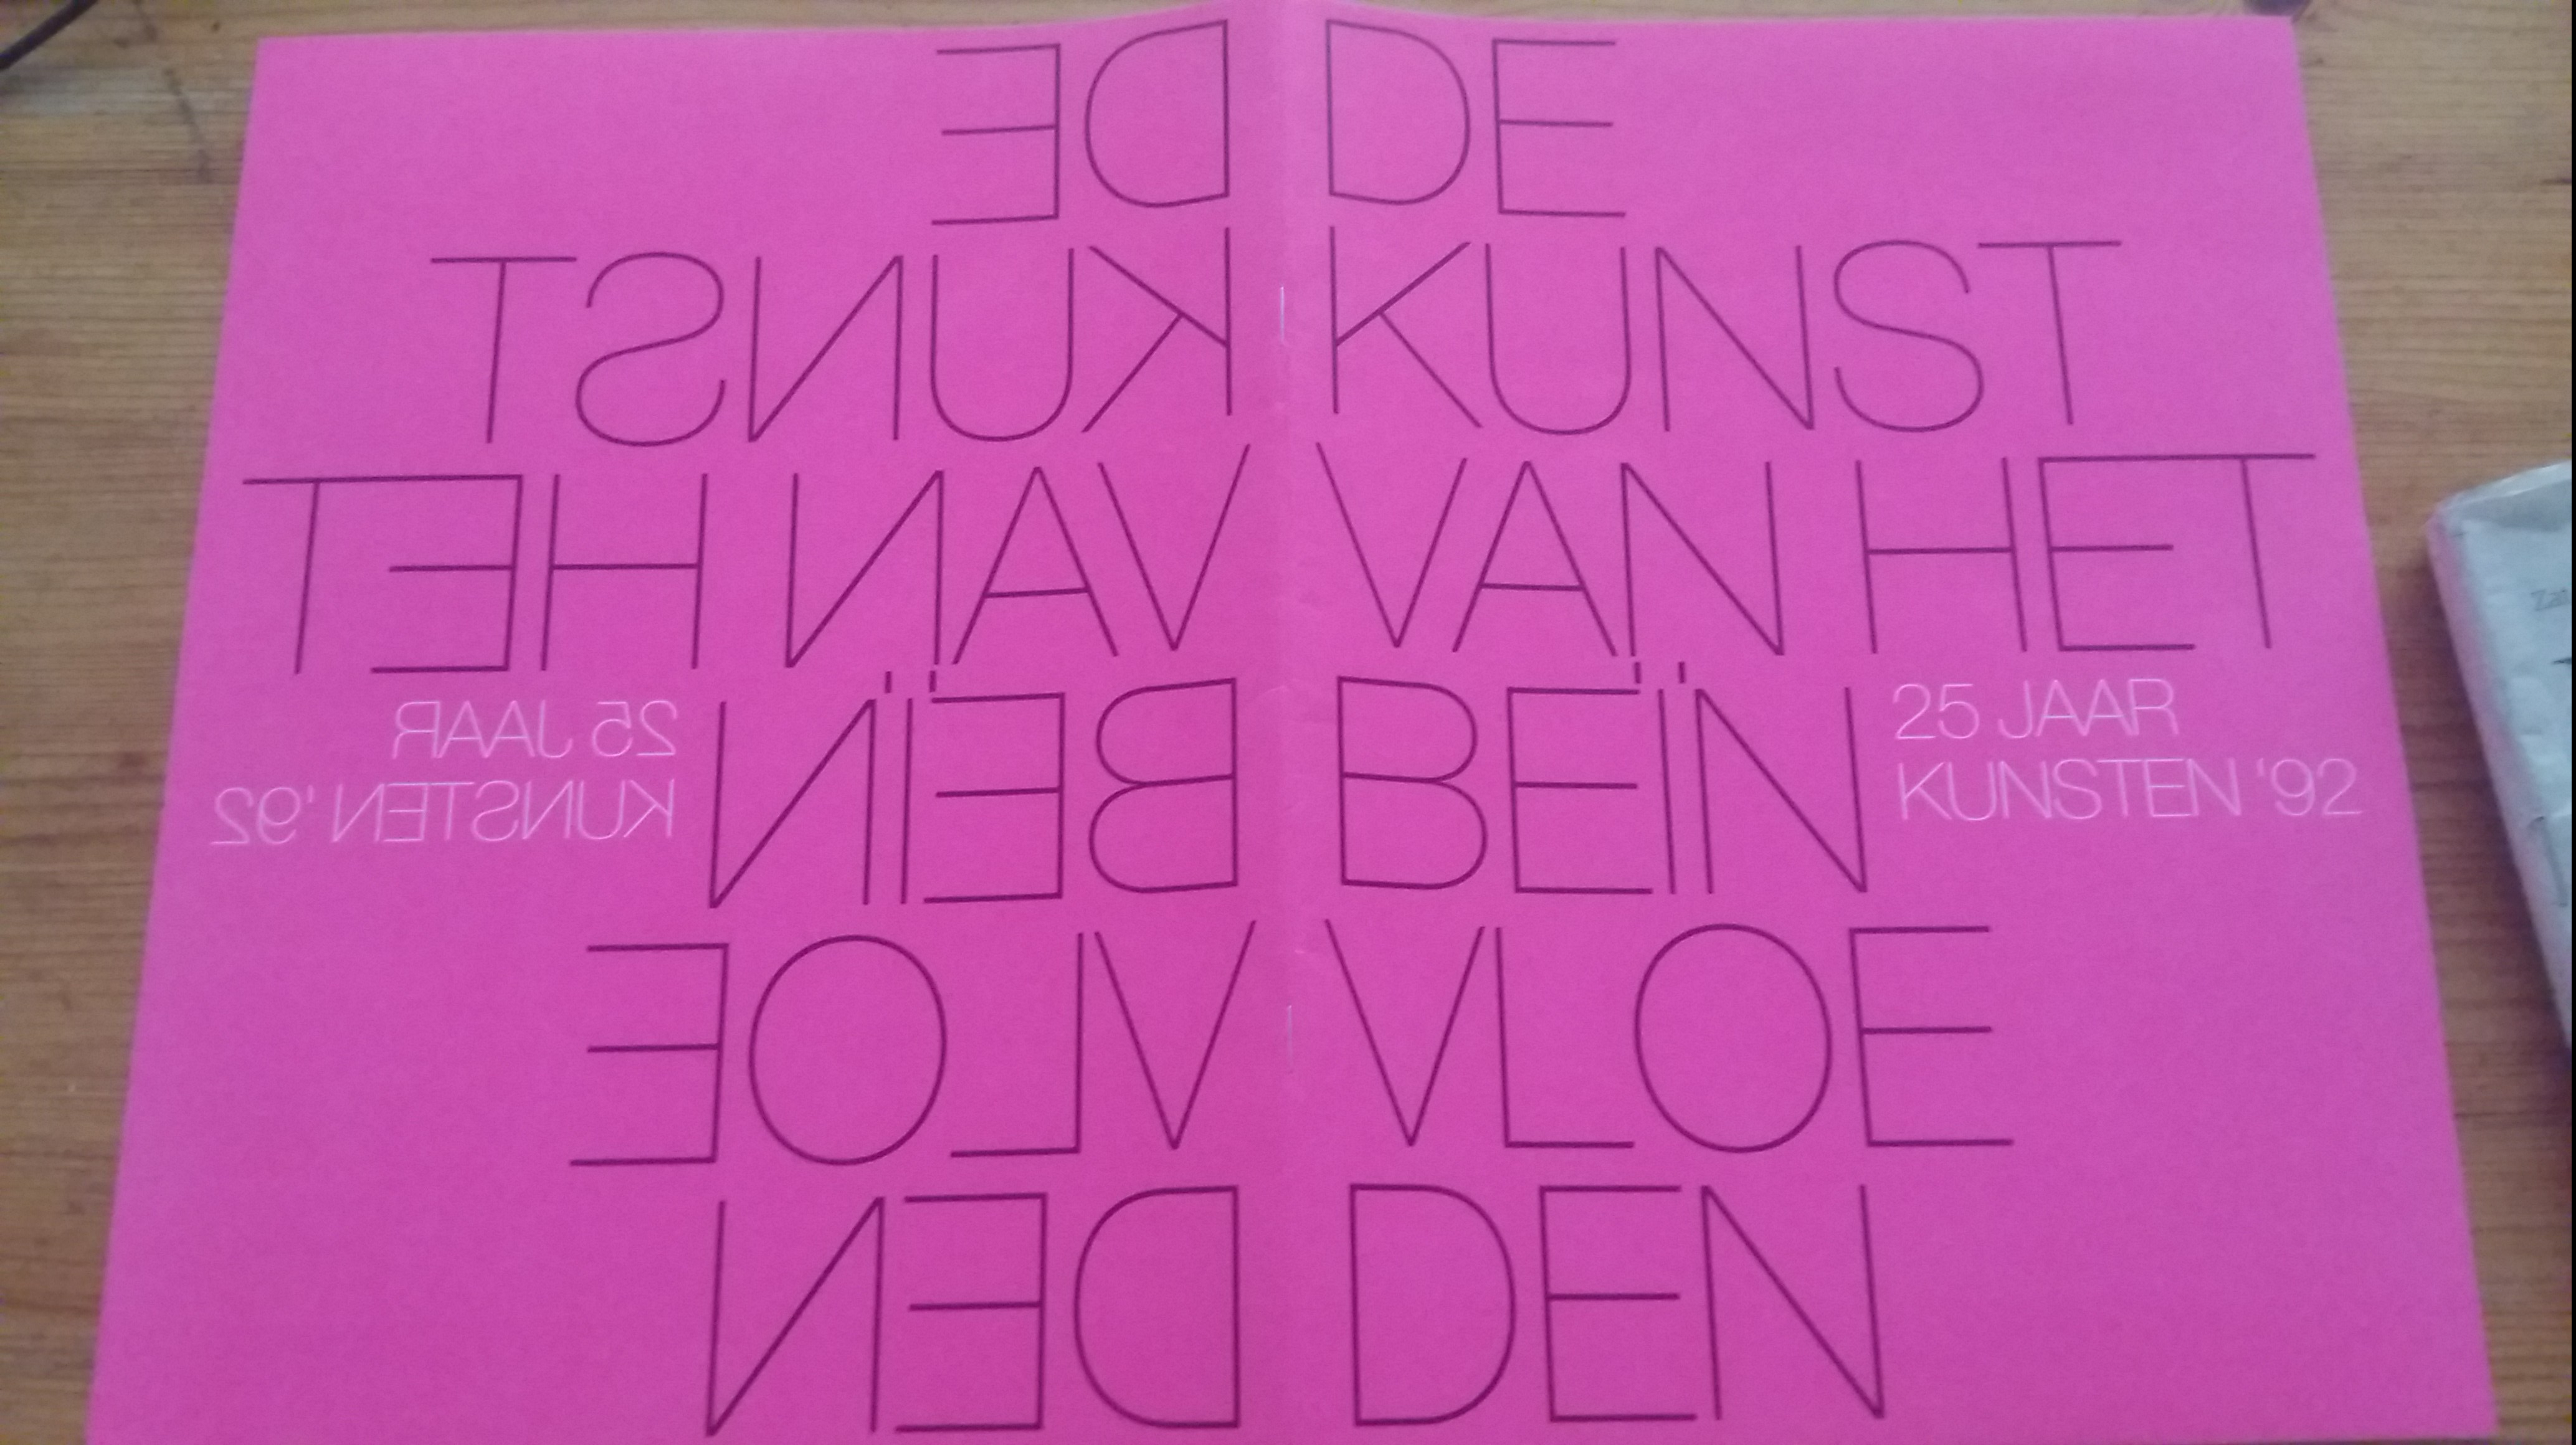 DE
KUNST
VAN HET
BEÏN
VLOE
DEN
25 JAAR
KUNSTEN '92
DE
KUNST
VAN HET
BEÏN
VLOE
DEN
25 JAAR
KUNSTEN '92